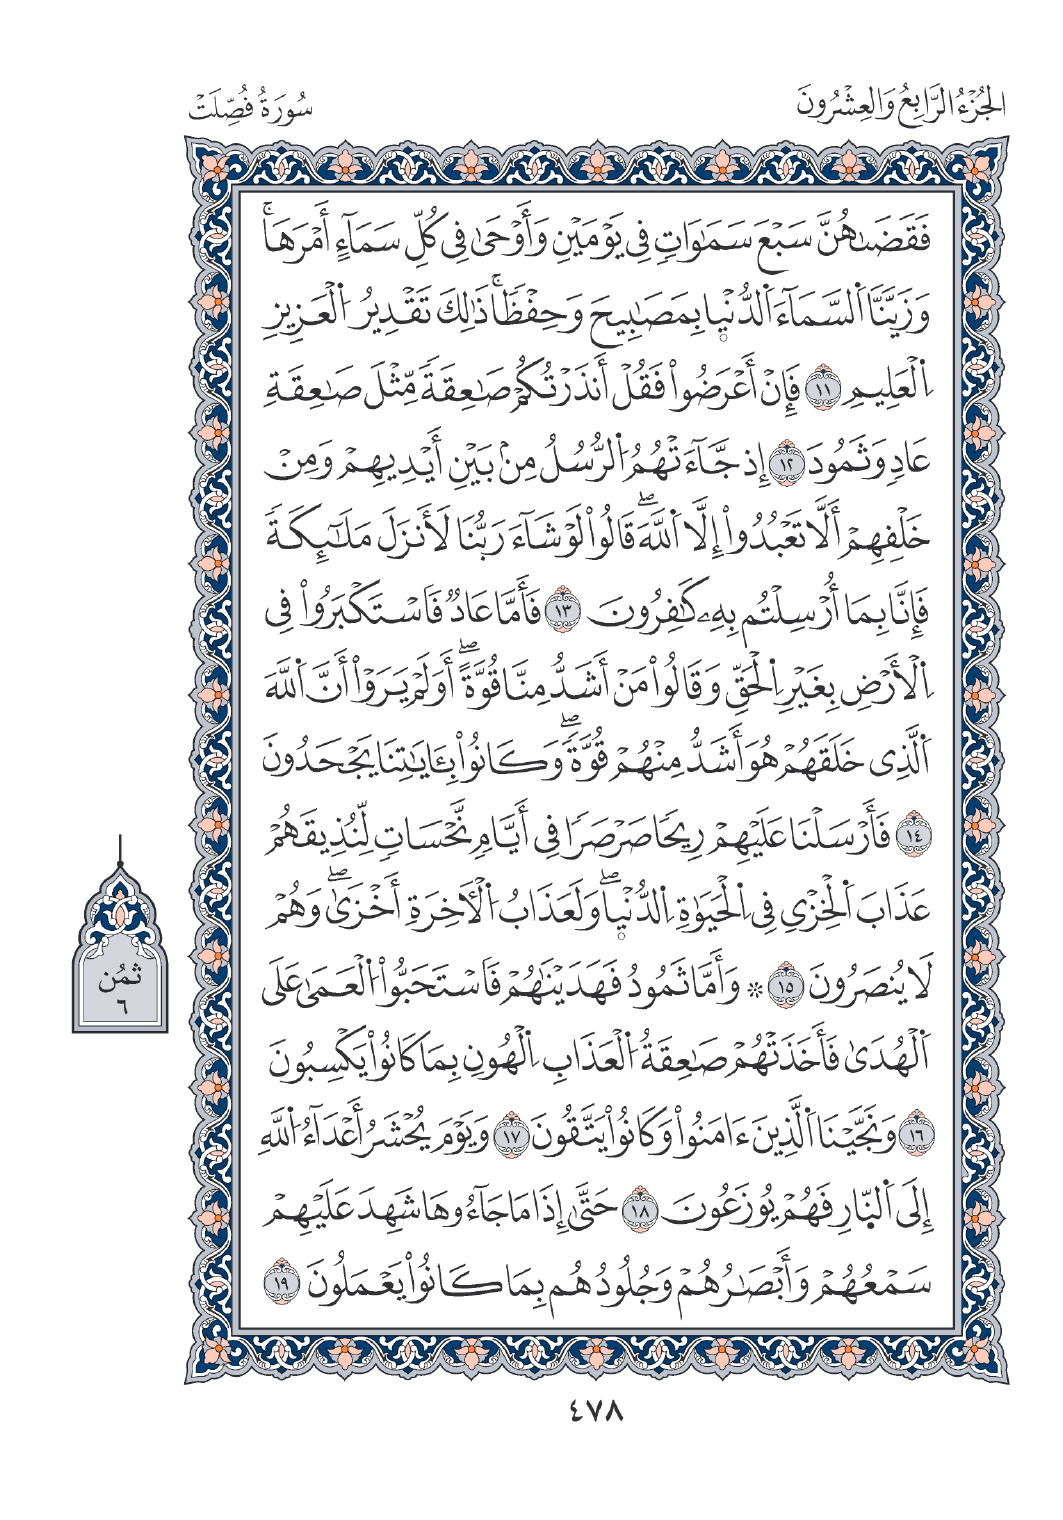 الجُزْءُ الرَّابِعُ وَالعِشْرُونَ
سُورَةُ فُصِّلَتْ
فَقَضَىٰهُنَّ سَبْعَ سَمَٰوَاتٖ فِي يَوْمَيْنِ وَأَوْحَىٰ فِي كُلِّ سَمَآءٍ أَمْرَهَاۚ
وَزَيَّنَّا اَ۬لسَّمَآءَ اَ۬لدُّنْي۪ا بِمَصَٰبِيحَ وَحِفْظٗاۚ ذَٰلِكَ تَقْدِيرُ اُ۬لْعَزِيزِ
اِ۬لْعَلِيمِ ۝١١ فَإِنْ أَعْرَضُواْ فَقُلْ أَنذَرْتُكُمْ صَٰعِقَةٗ مِّثْلَ صَٰعِقَةِ
عَادٖ وَثَمُودَ ۝١٢ إِذ جَّآءَتْهُمُ اُ۬لرُّسُلُ مِنۢ بَيْنِ أَيْدِيهِمْ وَمِنْ
خَلْفِهِمْ أَلَّا تَعْبُدُواْ إِلَّا اَ۬للَّهَۖ قَالُواْ لَوْ شَآءَ رَبُّنَا لَأَنزَلَ مَلَٰٓئِكَةٗ
فَإِنَّا بِمَا أُرْسِلْتُم بِهِۦ كَٰفِرُونَ ۝١٣ فَأَمَّا عَادٞ فَاسْتَكْبَرُواْ فِي
اِ۬لْأَرْضِ بِغَيْرِ اِ۬لْحَقِّ وَقَالُواْ مَنْ أَشَدُّ مِنَّا قُوَّةًۖ أَوَلَمْ يَرَوْاْ أَنَّ اَ۬للَّهَ
اَ۬لَّذِي خَلَقَهُمْ هُوَ أَشَدُّ مِنْهُمْ قُوَّةٗۖ وَكَانُواْ بِـَٔايَٰتِنَا يَجْحَدُونَ
۝١٤ فَأَرْسَلْنَا عَلَيْهِمْ رِيحٗا صَرْصَرٗا فِي أَيَّامٖ نَّحْسَاتٖ لِّنُذِيقَهُمْ
عَذَابَ اَ۬لْخِزْيِ فِي اِ۬لْحَيَوٰةِ اِ۬لدُّنْي۪اۖ وَلَعَذَابُ اُ۬لْأٓخِرَةِ أَخْزَىٰۖ وَهُمْ
لَا يُنصَرُونَ ۝١٥ ۞ وَأَمَّا ثَمُودُ فَهَدَيْنَٰهُمْ فَاسْتَحَبُّواْ اُ۬لْعَمَىٰ عَلَى
اَ۬لْهُدَىٰ فَأَخَذَتْهُمْ صَٰعِقَةُ اُ۬لْعَذَابِ اِ۬لْهُونِ بِمَا كَانُواْ يَكْسِبُونَ
۝١٦ وَنَجَّيْنَا اَ۬لَّذِينَ ءَامَنُواْ وَكَانُواْ يَتَّقُونَ ۝١٧ وَيَوْمَ يُحْشَرُ أَعْدَآءُ اُ۬للَّهِ
إِلَى اَ۬لنّ۪ارِ فَهُمْ يُوزَعُونَ ۝١٨ حَتَّىٰ إِذَا مَا جَآءُوهَا شَهِدَ عَلَيْهِمْ
سَمْعُهُمْ وَأَبْصَٰرُهُمْ وَجُلُودُهُم بِمَا كَانُواْ يَعْمَلُونَ ۝١٩
ثُمُن
٦
٤٧٨